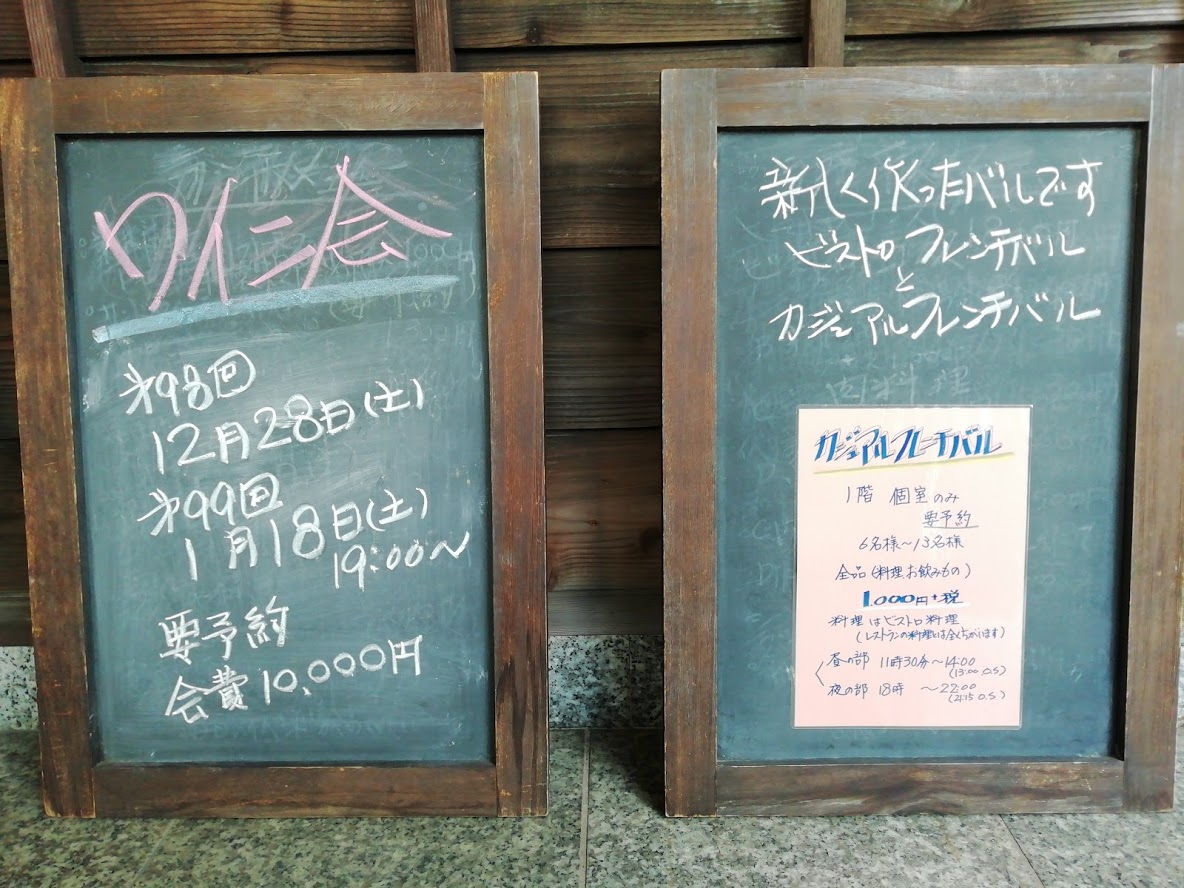 ワイン会
第98回
12月28日(土)
第99回
1月18日(土)
19:00〜
要予約
会費10,000円
新しく作ったバルです
ビストロ フレンチバル
と
カジュアルフレンチバル
肉料理
カジュアルフレーチバル
1階 個室のみ
要予約
6名様〜13名様
全品(料理お飲みもの)
1.000円+税
料理はビストロ料理
(レストランの料理とは全くちがいます)
昼の部 11時30分〜14:00
(13:00 O.S)
夜の部 18時 〜22:00
(21:15 O.S)